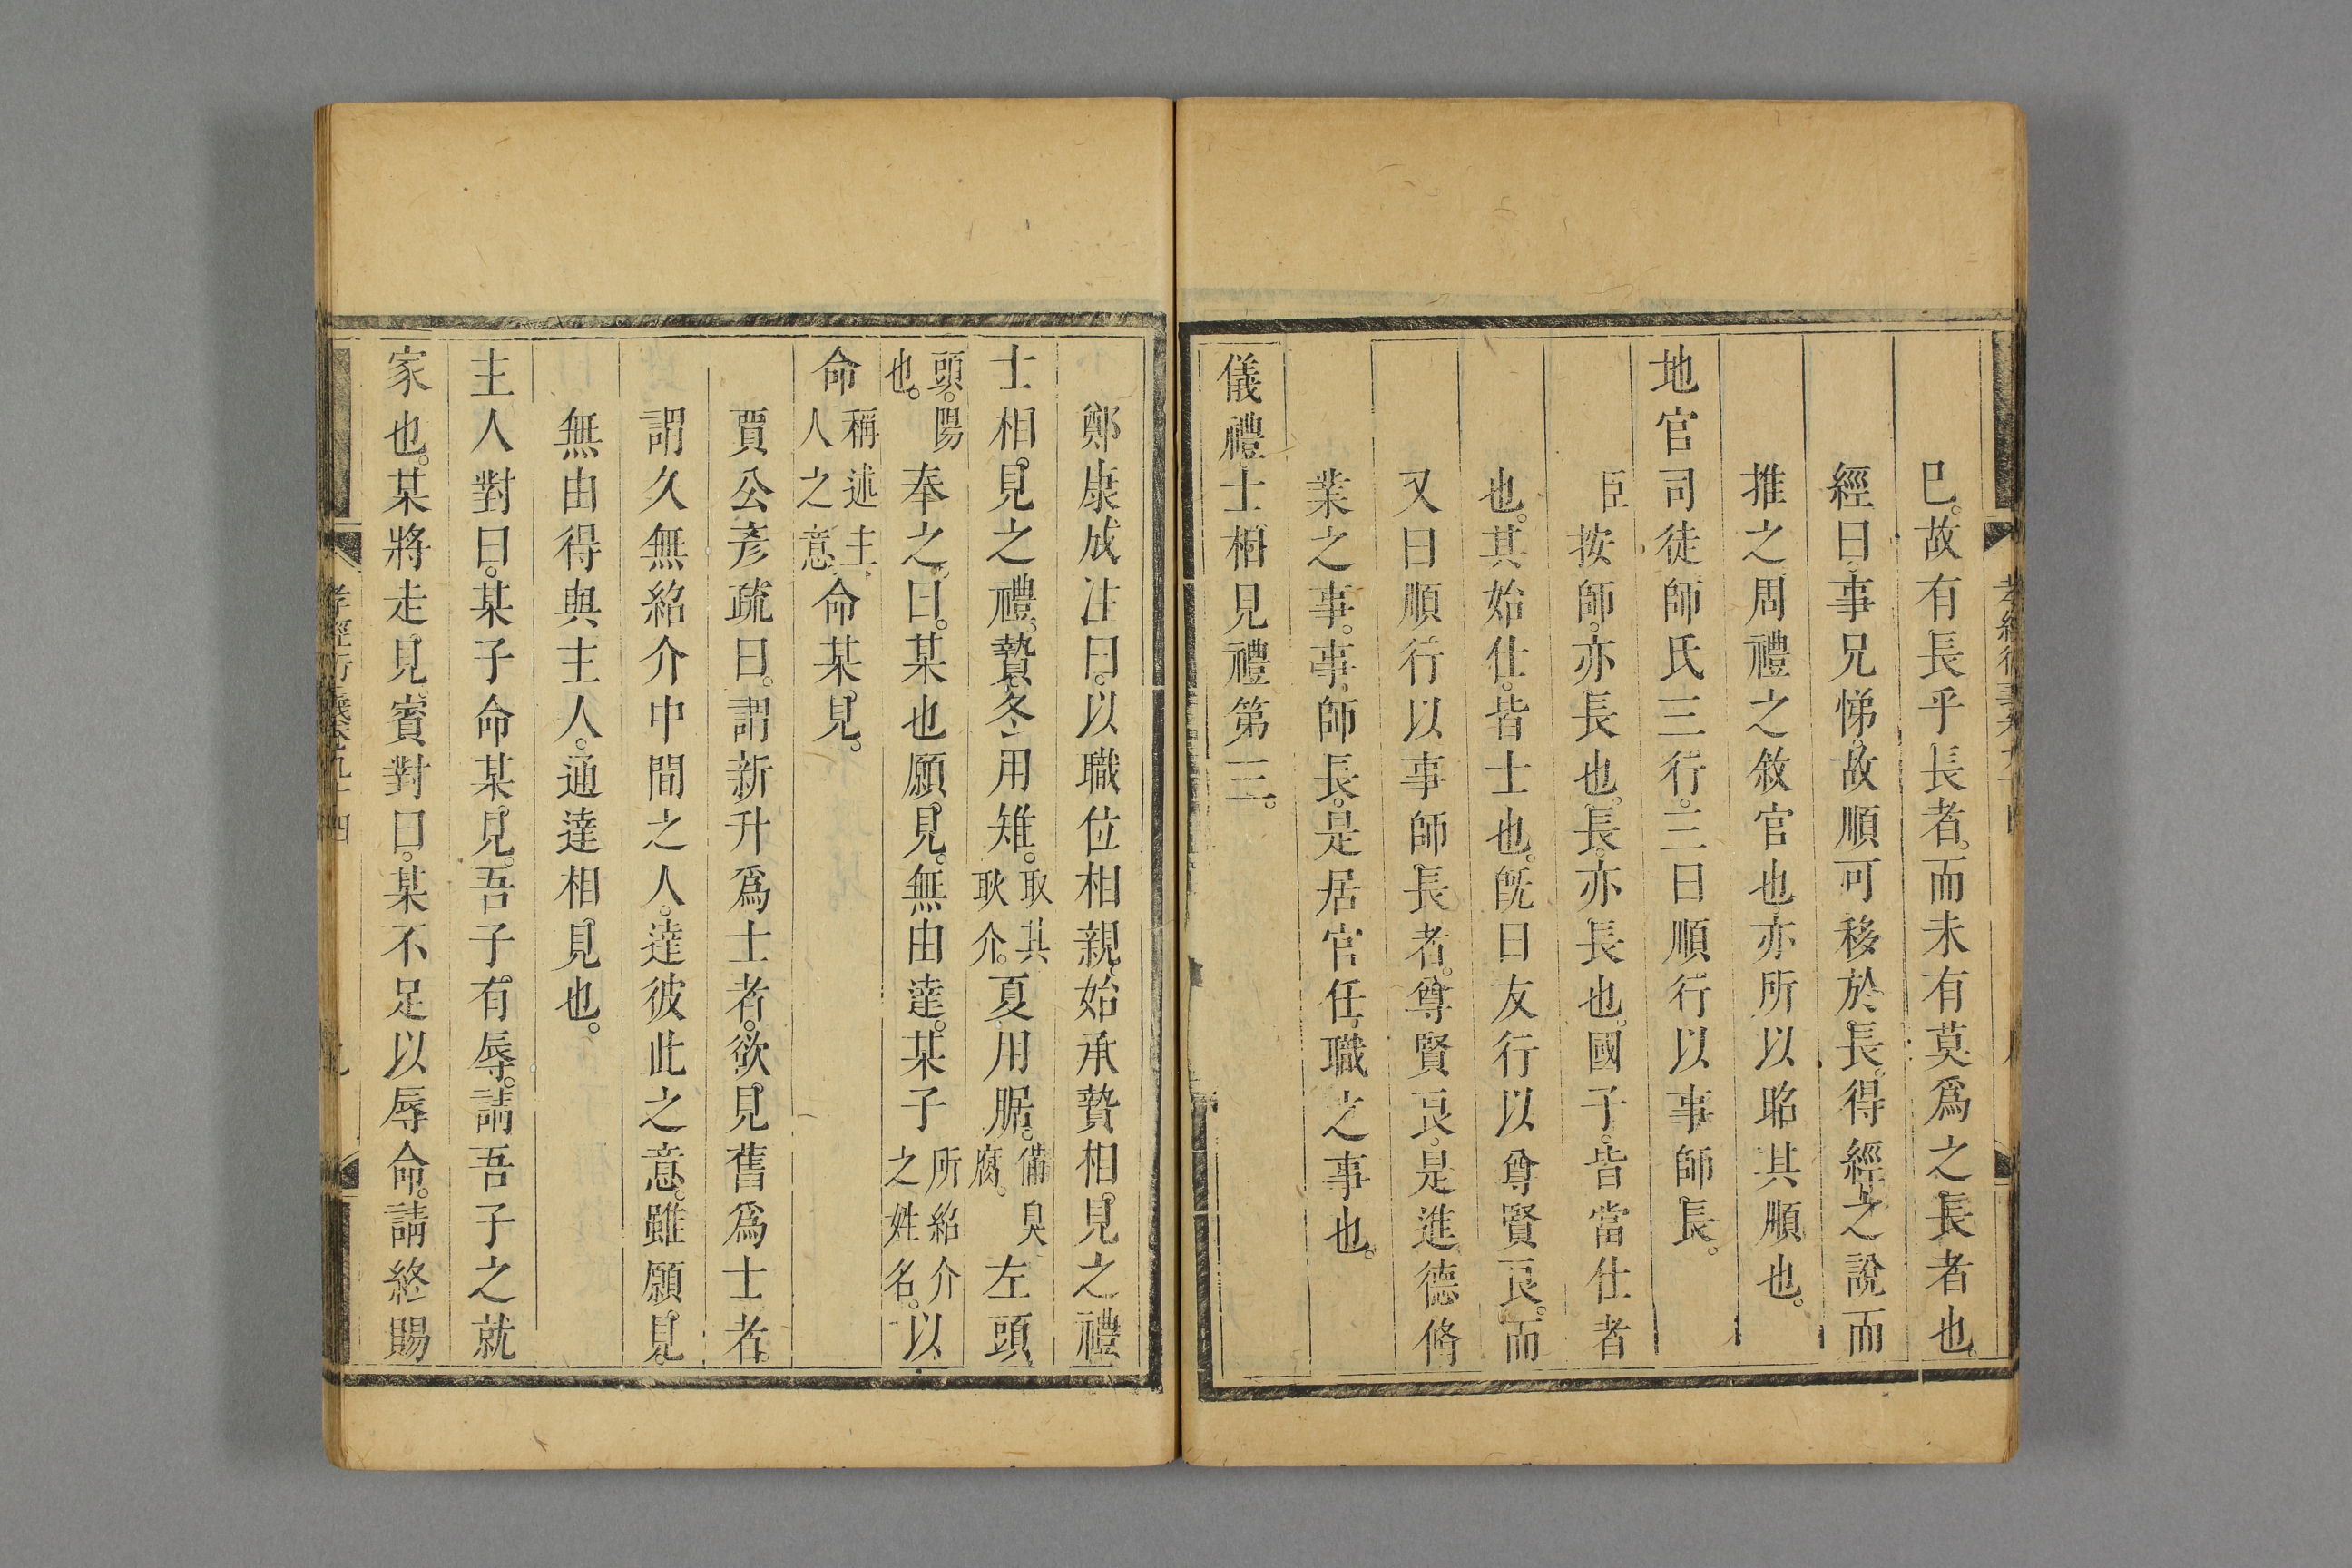 巳。故有長乎長者。而未有莫爲之長者也。
經曰。事兄悌。故順可移於長。得經之說而
推之周禮之敘官也。亦所以昭其順也。
地官司徒師氏三行。三曰順行以事師長。
臣按師。亦長也。長。亦長也。國子。皆當仕者
也。其始仕。皆士也。旣曰友行以尊賢良。而
又曰順行以事師長者。尊賢良。是進德脩
業之事。事師長。是居官任職之事也。
儀禮士相見禮第三。
鄭康成注曰。以職位相親。始承贄相見之禮
士相見之禮。贄。冬用雉。取其耿介。夏用腒。備腐臭左頭
頭。陽也。奉之。曰。某也願見。無由達。某子所紹介之姓名。以
命稱述主人之意命某見。
賈公彥疏曰。謂新升爲士者。欲見舊爲士者。
謂久無紹介中間之人。達彼此之意。雖願見。
無由得與主人。通達相見也。
主人對曰。某子命某見。吾子有辱。請吾子之就
家也。某將走見。賓對曰。某不足以辱命。請終賜
孝經衍義卷九十四